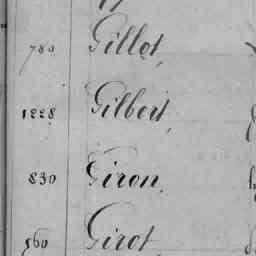 780 Gillot,
1228 Gilbert,
830 Giron,
560 Girot,